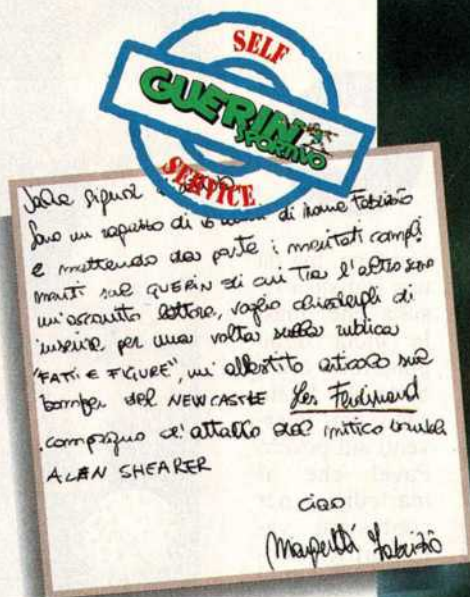 SELF
GUERIN
SPORTIVO
SERVICE
Salve signor
sono un ragazzo di anni di nome Fabrizio
e mettendo da parte i meritati compli
menti sul GUERIN di cui tra l'altro sono
un'accanito lettore, voglio chiedergli di
inserire per una volta sulla rubrica
"FATTI E FIGURE", un' allestito articolo sul
bomber del NEWCASTLE Les Ferdinand
compagno d'attacco del mitico bomber
ALAN SHEARER
CIAO
Fabrizio